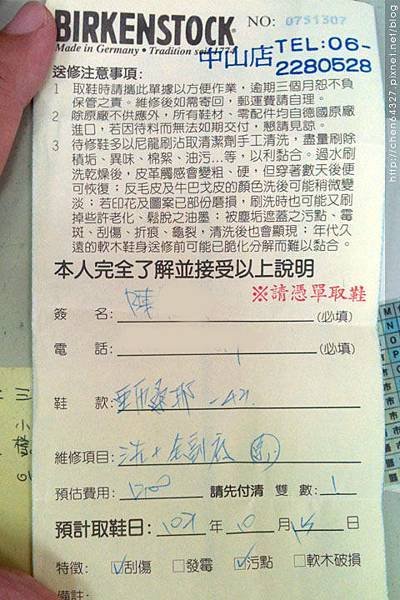 BIRKENSTOCK
Made in Germany • Tradition seit 1774
NO: 0751307
中山店 TEL:06-2280528
送修注意事項:
1 取鞋時請攜此單據以方便作業，逾期三個月恕不負
保管之責。維修後如需寄回，郵運費請自理。
2 除原廠不供應外，所有鞋材、零配件均自德國原廠
進口，若因待料而無法如期交付，懇請見諒。
3 待修鞋多以尼龍刷沾取清潔劑手工清洗，盡量刷除
積垢、異味、棉絮、油污…等，以利黏合。過水刷
洗乾燥後，皮革觸感會變粗、硬，但穿著數天後便
可恢復；反毛皮及牛巴戈皮的顏色洗後可能稍微變
淡；若印花及圖案已部份磨損，刷洗時也可能又刷
掉些許老化、鬆脫之油墨；被塵垢遮蓋之污點、霉
斑、刮傷、折痕、龜裂，清洗後也會顯現；年代久
遠的軟木鞋身送修前可能已脆化分解而難以黏合。
本人完全了解並接受以上說明
※請憑單取鞋
簽 名: 陳 (必填)
電 話: (必填)
鞋 款: 亞利桑那 -42.
維修項目: 洗+
預估費用: 1200 請先付清 雙 數: 1
預計取鞋日: 102 年 10 月 15 日
特徵: ☑刮傷 □發霉 ☑污點 □軟木破損
備註:
http://chen64327.pixnet.net/blog
三
小